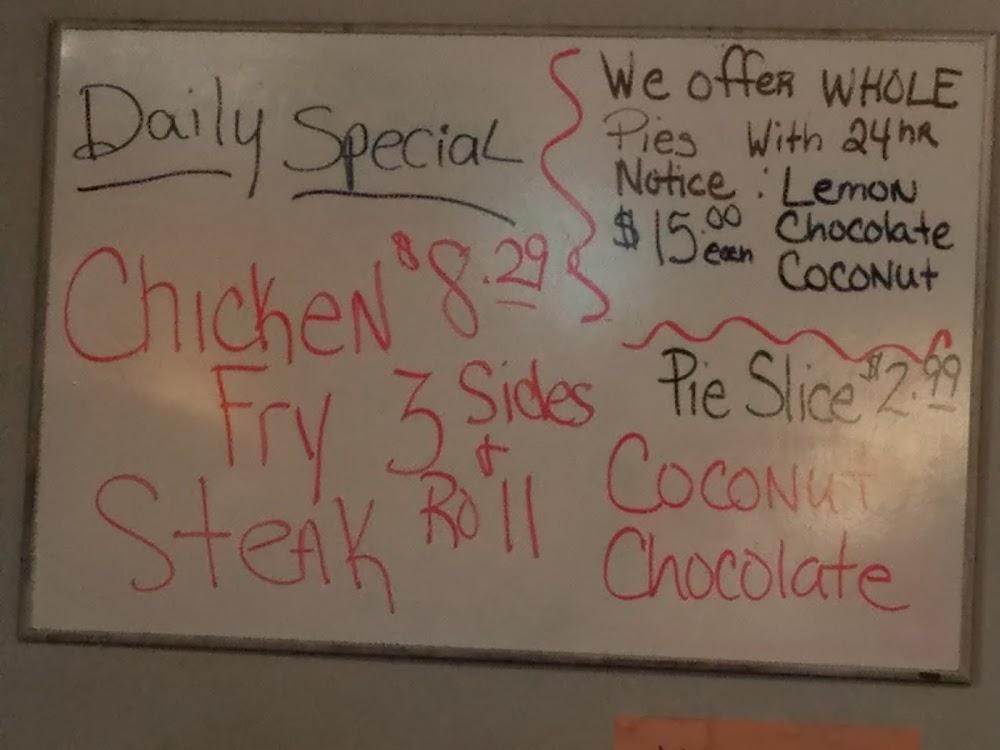 Daily Special
Chicken $8.29
Fry 3 Sides
+
Steak Roll
We offer WHOLE
Pies With 24hr
Notice : Lemon
$15.00 each Chocolate
Coconut
Pie Slice $2.99
Coconut
Chocolate